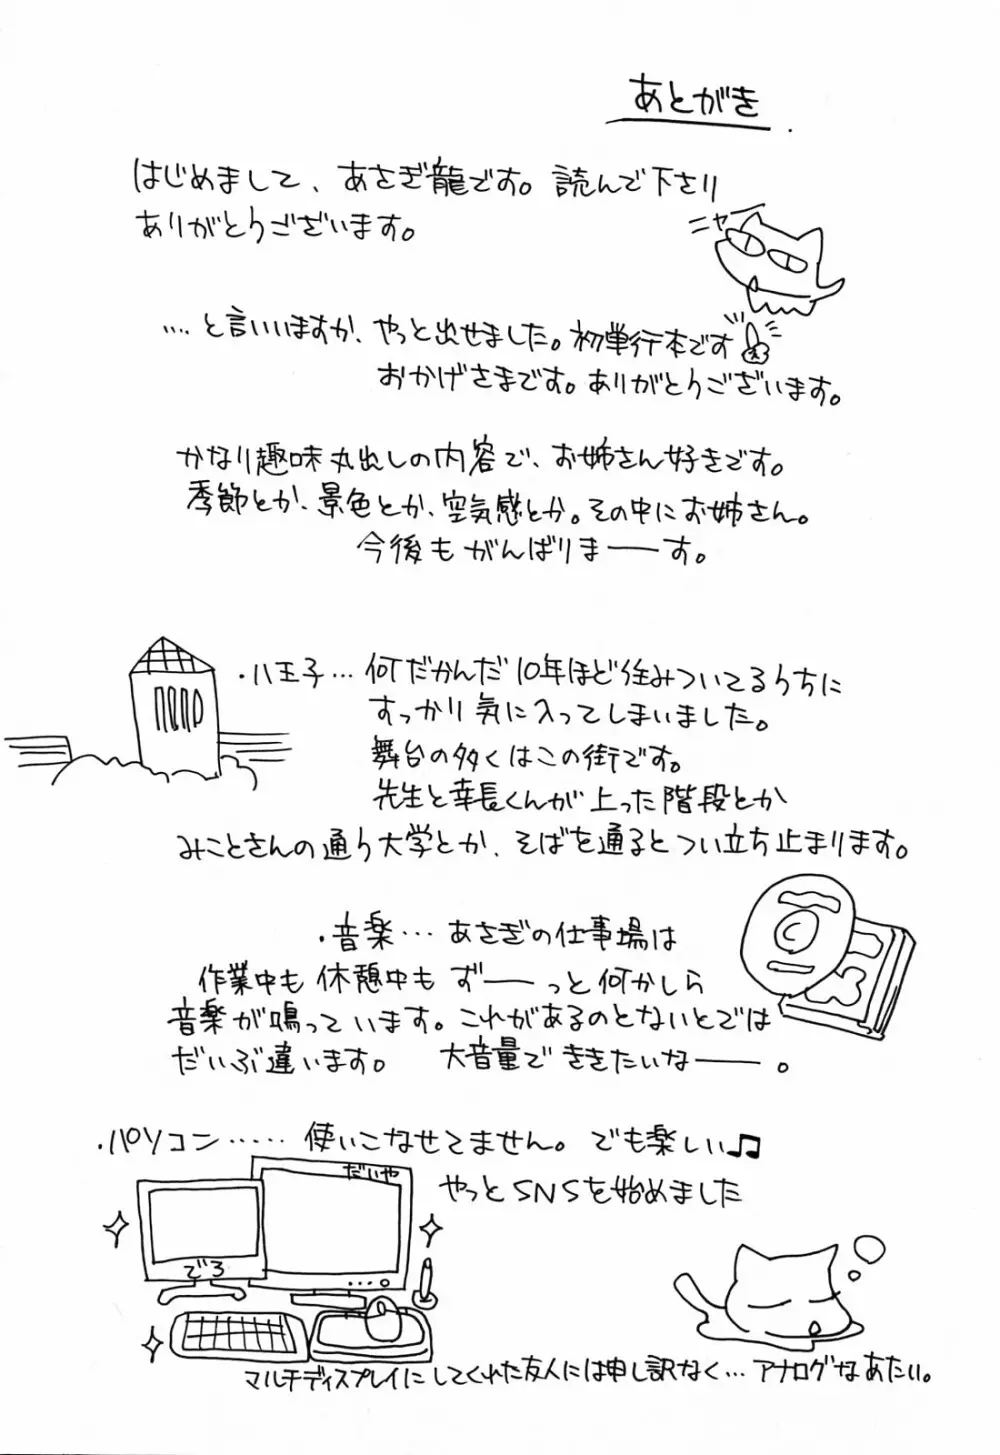 あとがき
はじめまして、あさぎ龍です。読んで下さり
ありがとうございます。
ニャー
‥‥と言いいますか、やっと出せました。初単行本です
おかげさまです。ありがとうございます。
かなり趣味丸出しの内容で、お姉さん好きです。
季節とか、景色とか、空気感とか。その中にお姉さん。
今後もがんばりまーーす。
・八王子…何だかんだ10年ほど住みついてるうちに
すっかり気に入ってしまいました。
舞台の多くはこの街です。
先生と幸長くんが上った階段とか
みことさんの通う大学とか、そばを通るとつい立ち止まります。
・音楽…あさぎの仕事場は
作業中も休憩中もずーーっと何かしら
音楽が鳴っています。これがあるのとないとでは
だいぶ違います。 大音量でききたいなーー。
・パソコン……使いこなせてません。でも楽しい♫
だいや
やっとSNSを始めました
でろ
マルチディスプレイにしてくれた友人には申し訳なく…アナログなあたい。